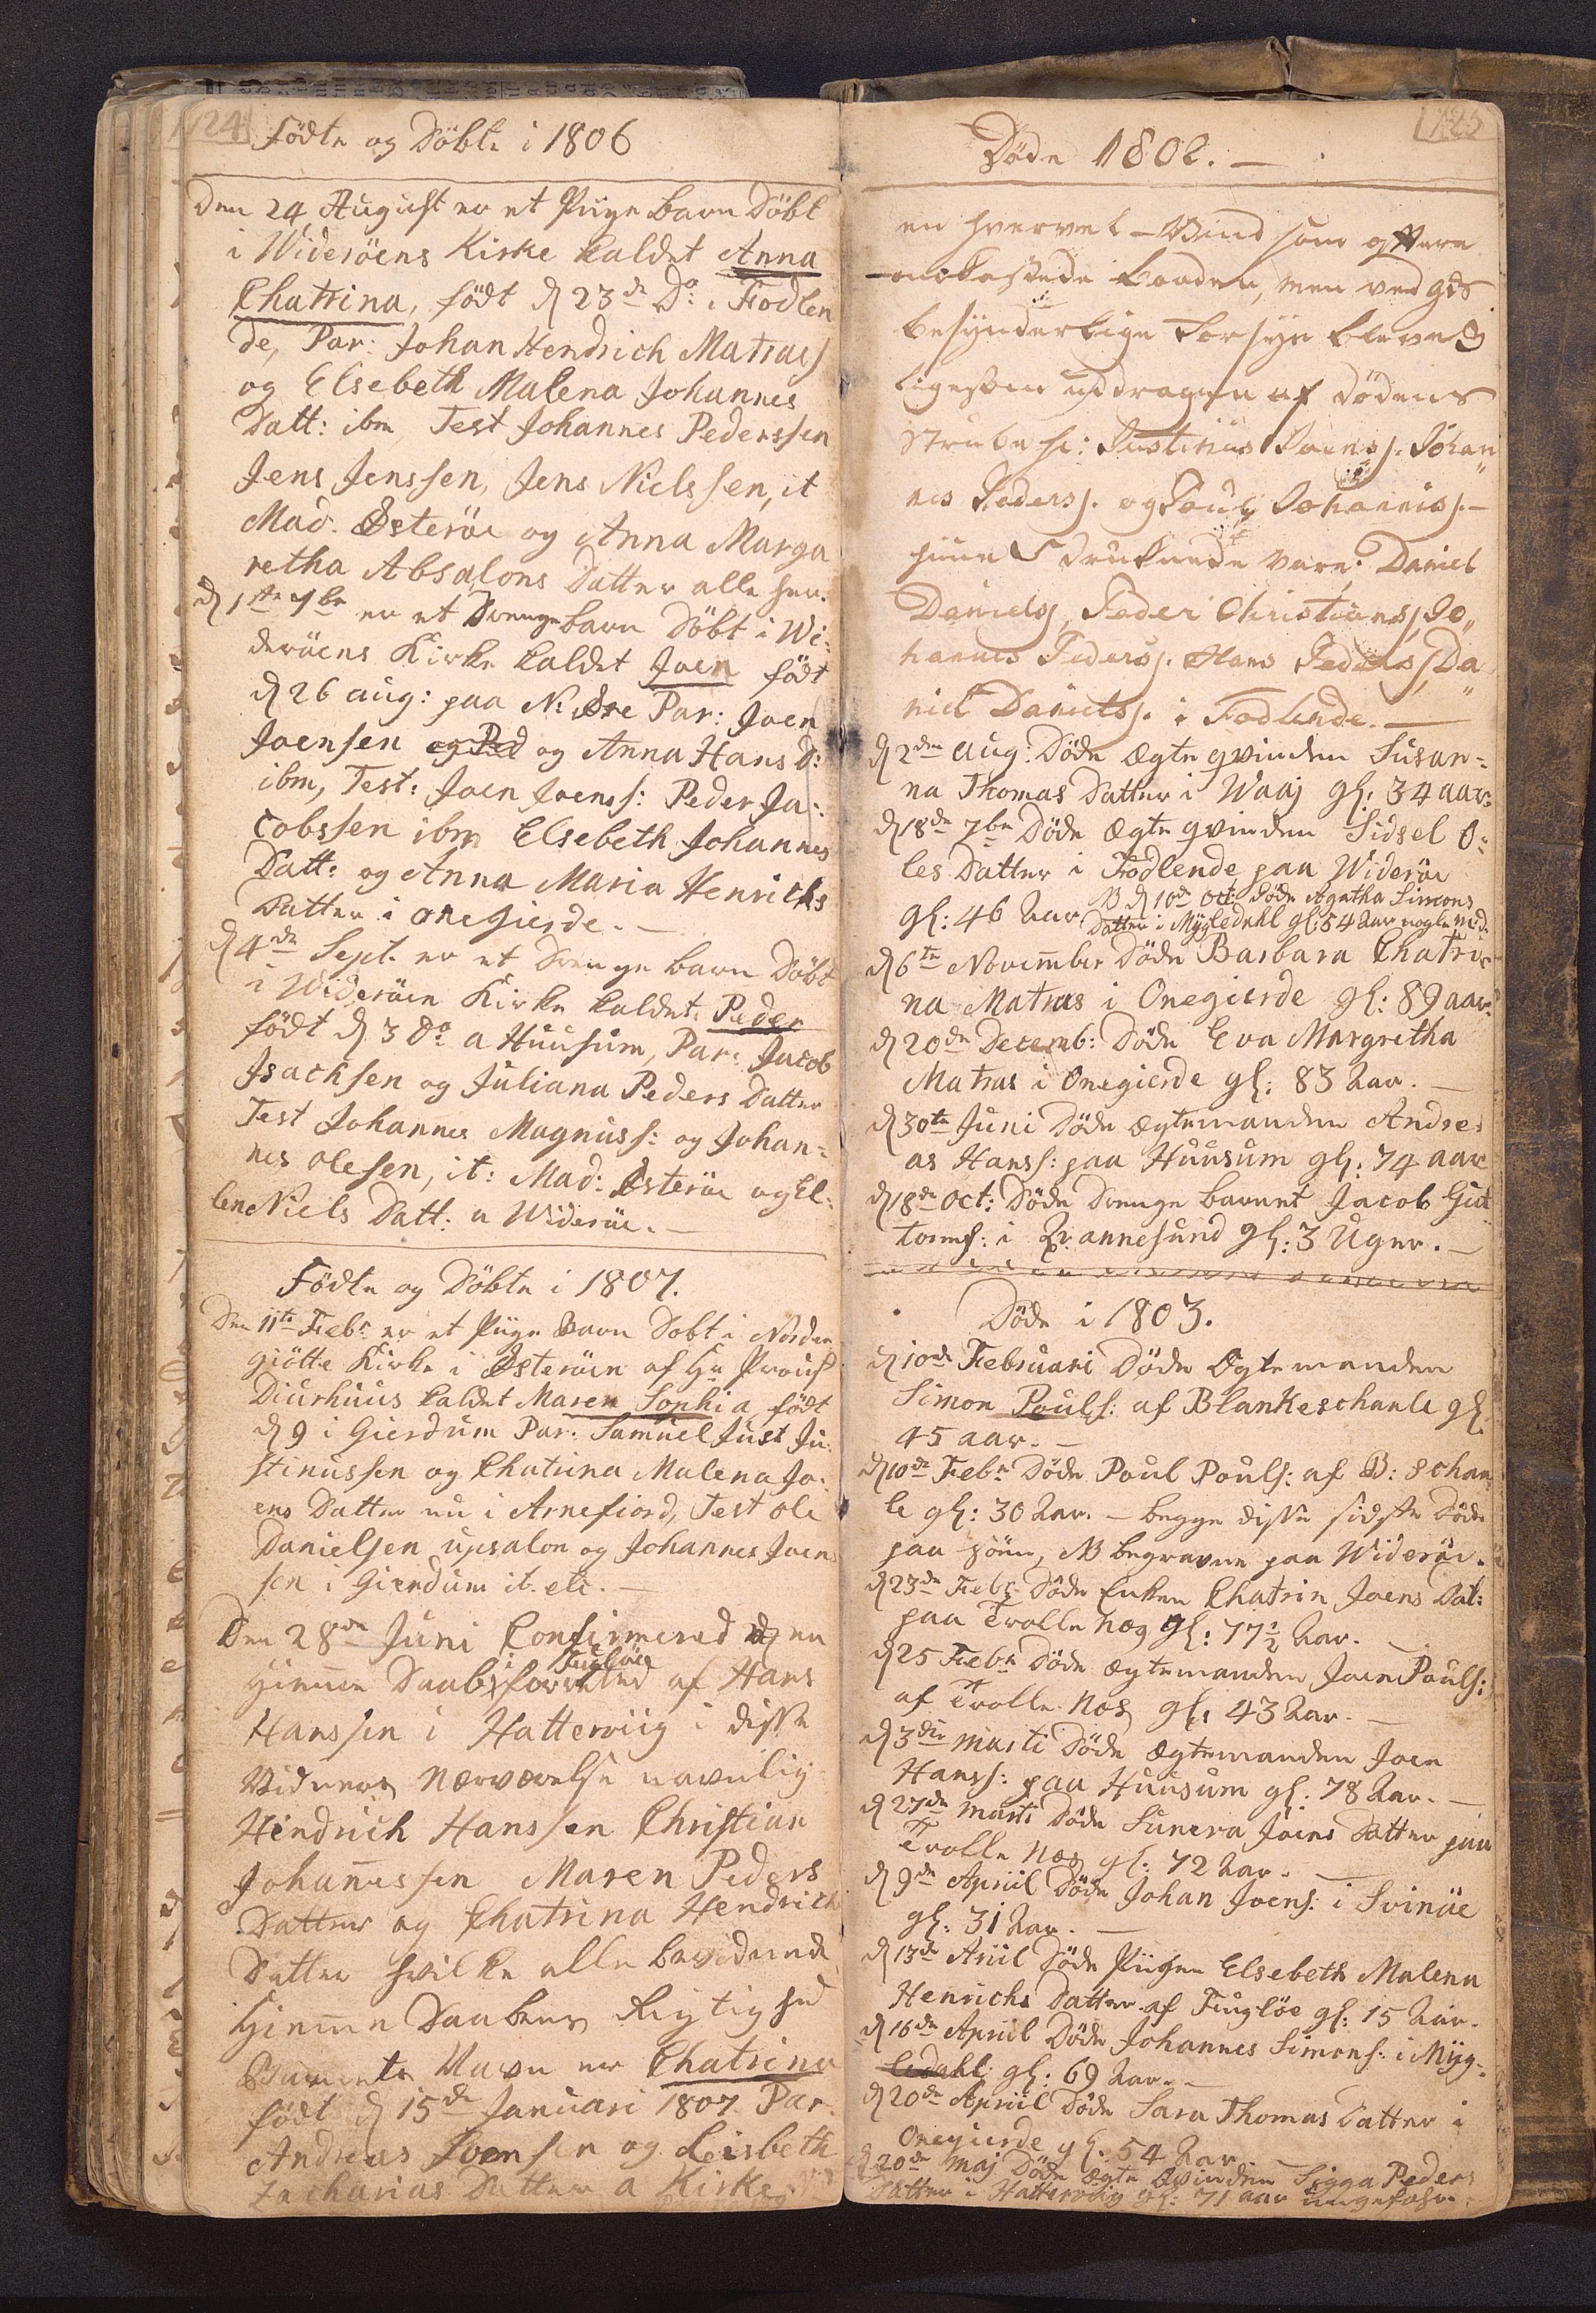 124
Födte og Döbte i 1806
Den 24 August er et Piige barn Döbt
i Wideröens Kirke kaldet Anna
Chatrina, født d 23de Do: i Fodlen
de, Par: Johan Hendrich Matras
og Elsebeth Malena Johannes
Datt: ibm, Test Johannes Pederssen
Jens Jenssen, Jens Nielssen, it
Mad. Österöe og Anna Marga
retha Absalons Datter alle her.
d 1ste 7br er et Drenge barn Döbt i Wi:
deröens Kirke kaldet Joen født
d 26 aug: paa N: Øre Par: Joen
Joensen og Ped og Anna Hans D:
ibm, Test: Joen Joenss: Peder Ja:
cobssen ibm Elsebeth Johannes
Datt: og Anna Maria Henrichs
Datter i Onegierde.
d 4de Sept. er et Drenge barn Döbt
i Wideröen Kirke kaldet Peder
født d 3 do a Huusum, Par: Jacob
Isachsen og Juliana Peders Datter
Test Johannes Magnuss: og Johan=
nes Olesen, it: Mad: Österöe og El:
len Niels Datt: a Wideröe.
Födte og Döbte i 1807.
Den 11te Febr er et Piige Barn Dobt i Norder
giötte Kirke i Österöen af Hr Proust
Diurhuus kaldet Maren Sophia født
d 9 i Gierdum Par: Samuel Just Ju:
stinussen og Chatrina Malena Jo:
ens Datter nu i Arnefiord, Test Ole
Danielsen upsalon og Johannes Joen
sen i Gierdum it. etc.
Den 28de Juni Confirmered jeg en
i Fugløe
Hiemme Daab forretted af Hans
Hanssen i Hatterviig i disse
Vidners Nærværelse navnlig
Hendrich Hanssen Christian
Johannessen Maren Peders
Datter og Chatrina Hendrich
Datter hvilke alle bevidnede
Hiemme Daabens Rigtighed
Barnets Navn er Chatrina
født d 15de Januari 1807 Par.
Andreas Svensen og Leisbeth
Zacharias Datter a Kirke
125
Døde 1802.
en hvervel-Wind som oftere
omkastede baaden, men ved Gds
besynderlige Forsyn bleve 3
ligesom uddragen af dødens
Strube sc: Justinus Joens. Johan
nes Peders. og Poul Johannis.
hine 5 druknede vare; Daniel
Daniels, Peder Christians, Jo,,
hannes Peders. Hans Peders, Da
niel Daniels. i Fodlende.
d 2den aug: Døde Ægte qvinden Susan=
na Thomas Datter i Waaj gl: 34 aar
d 18de 7br Døde Ægte qvinden Sidsel O=
les Datter i Fodlende paa Wideröe
gl: 46 Aar NB d 10de Oct: Døde Agatha Simons
Datter i Mygledahl gl: 54 Aar nogle Md.
d 6te November Døde Barbara Chatri=
na Matras i Onegierde gl: 89 aar
d 20de Decemb: Døde Eva Margretha
Matras i Onegierde gl: 83 Aar.
d 30te Juni Døde Ægtemanden Andre=
as Hanss: paa Huusum gl: 74 aar
d 18de Oct: Døde Drenge barnet Jacob Gut
torms: i Qvannesund gl: 3 Uger.
Døde i 1803.
d 10de Februari Døde Ægtemanden
Simon Pouls: af Blankeschaale gl.
45 aar.
d 10de Febr Døde Poul Pouls: af B: Schaa
le gl: 30 Aar. - begge disse sidste Døde
paa søen, NB begravne paa Wideröe.
d 23de Febr Døde Enken Chatrin Joens Dat:
paa Trolle næs gl: 77½ Aar.
d 25 Febr Døde Ægtemanden Joen Pouls:
af Trolle næs gl: 43 Aar.
d 3die Marti Døde Ægtemanden Joen
Hanss: paa Huusum gl: 78 Aar.
d 27de Marti Døde Sunera Joens Datter paa
Trolle næs gl: 72 Aar.
d 9de Apriil Døde Johan Joens: i Svinöe
gl: 31 Aar.
d 13de Apriil Døde Piigen Elsebeth Malena
Henrichs Datter af Fuglöe gl: 15 Aar.
d 16de Apriil Døde Johannes Simons: i Myg=
ledahl gl: 69 Aar.
d 20de Apriil Døde Sara Thomas Datter i
Onegierde gl: 54 Aar
d 20de Maj Døde Ægte Qvinden Sigga Peders
Datter i Hatterviig gl: 71 aar ungefehr.